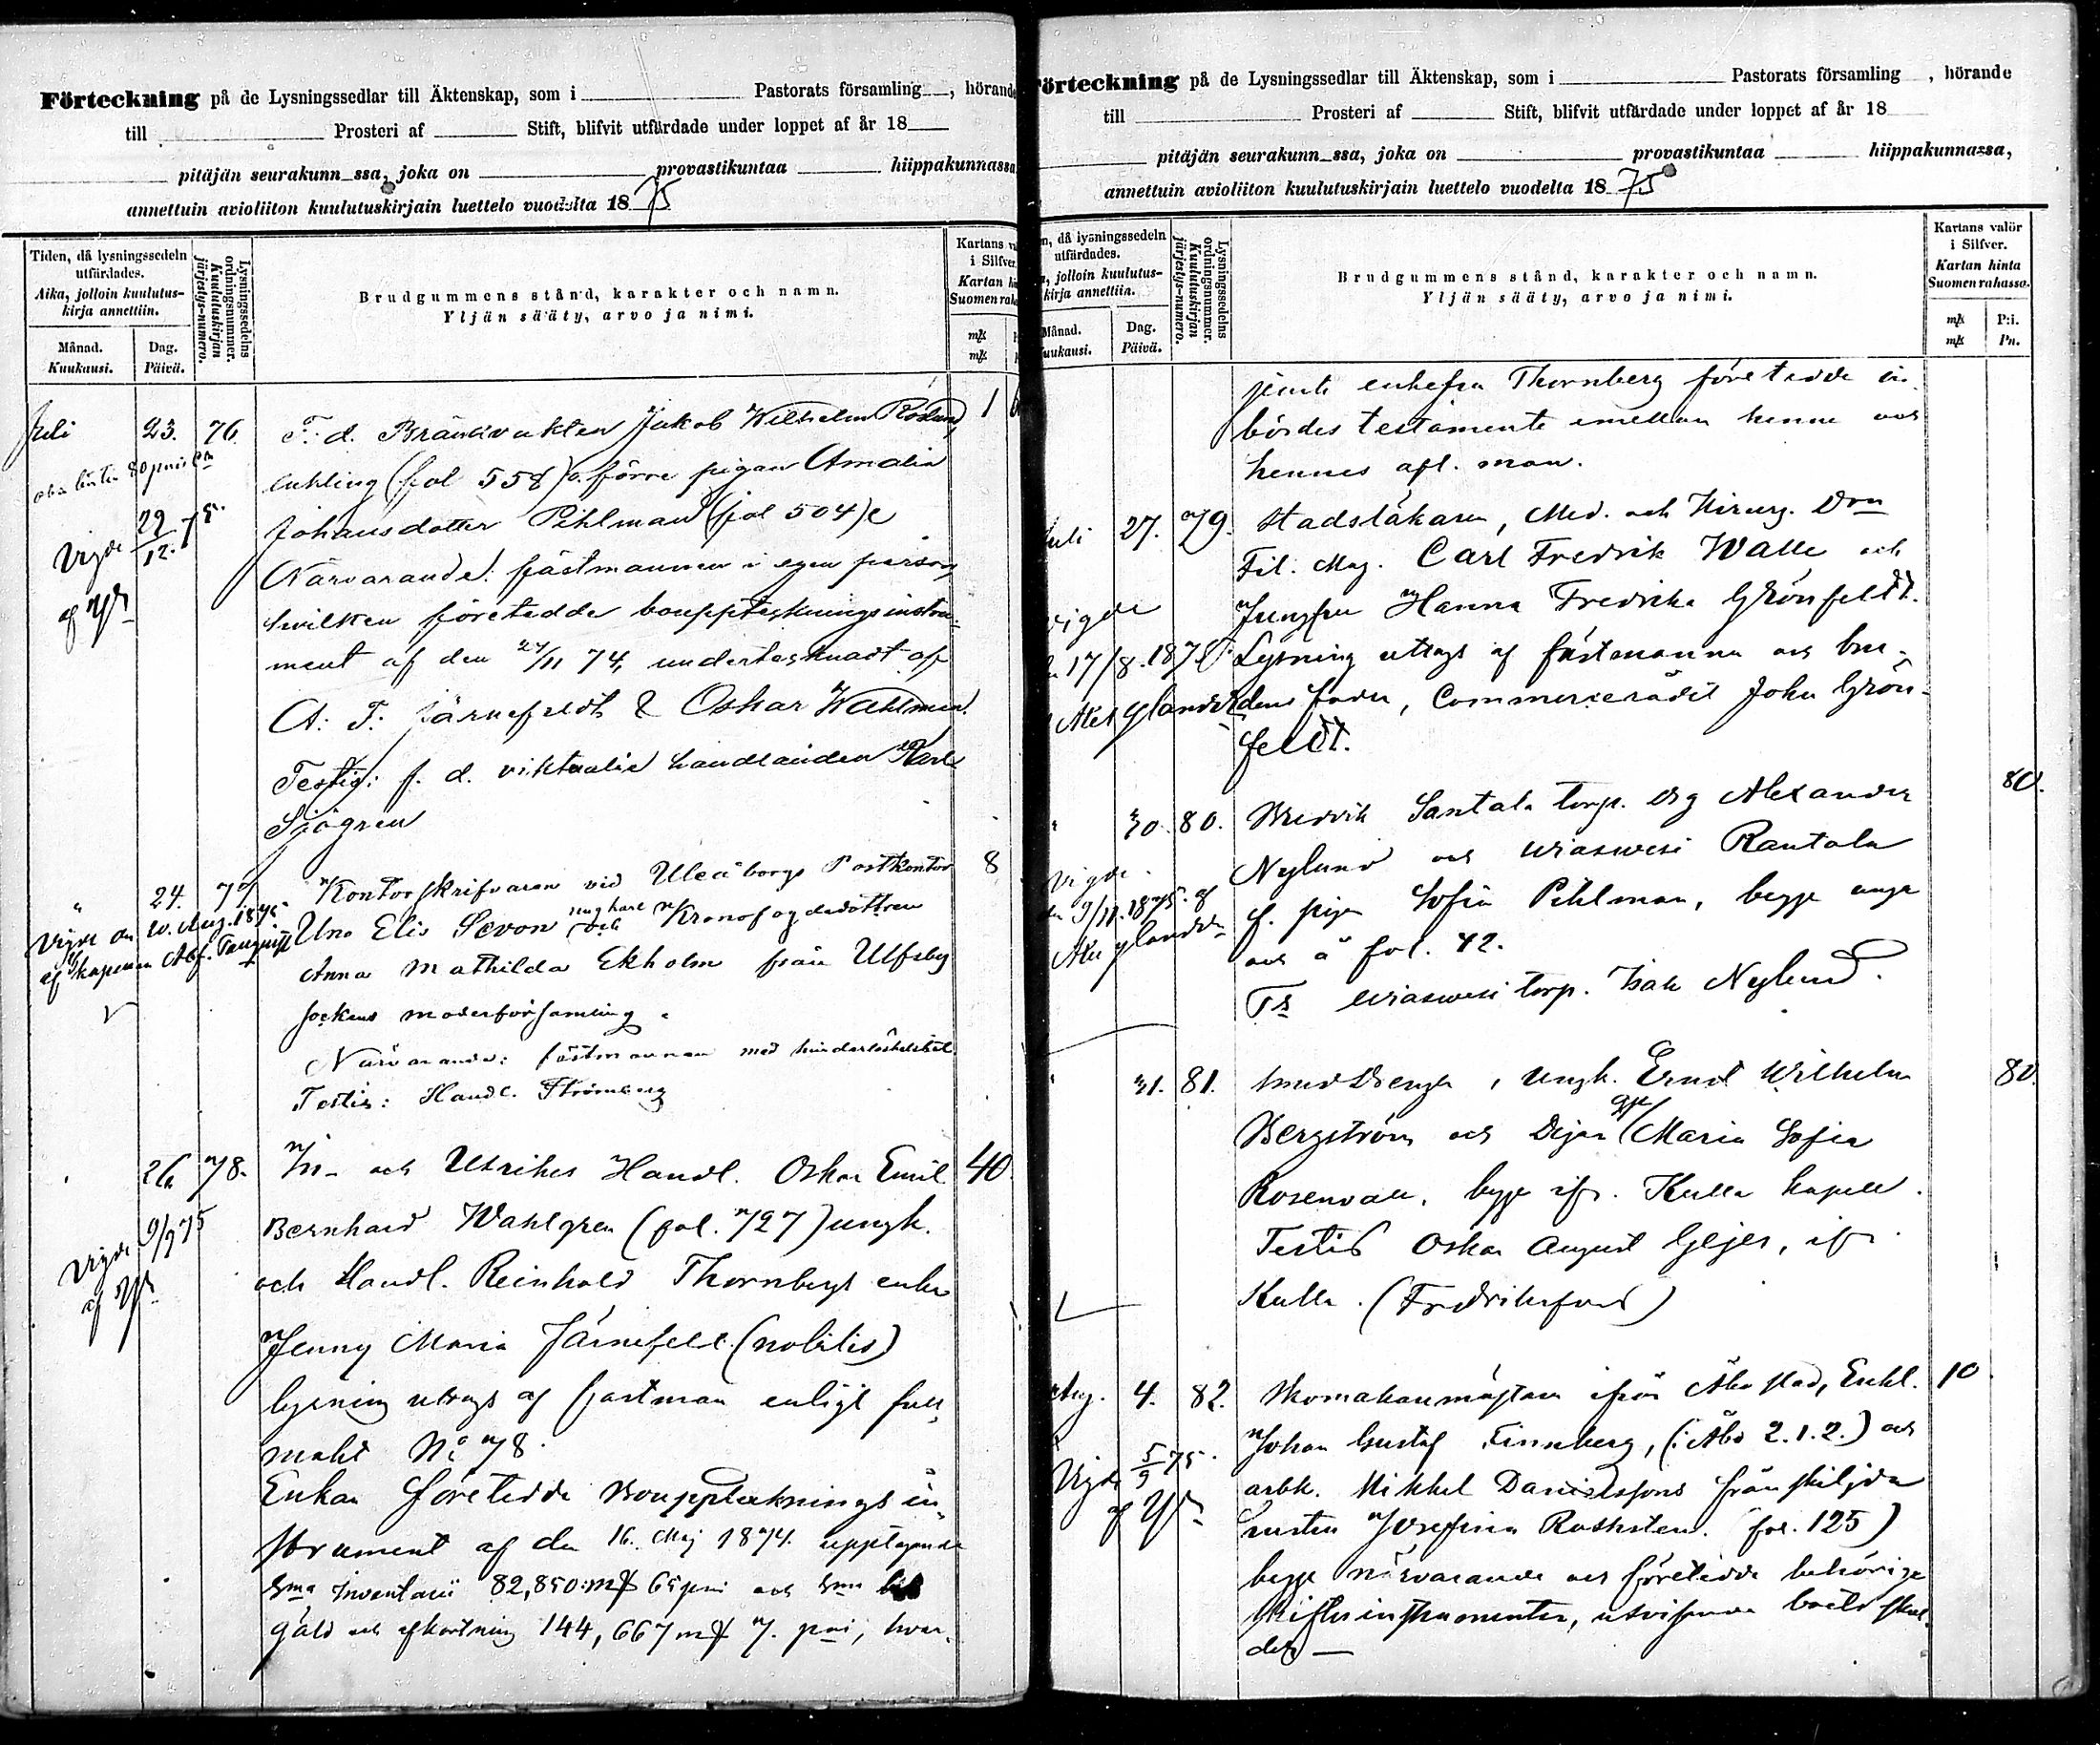 Förteckning på de Lysningssedlar till Äktenskap, som i Pastorats församling, hörande
till Prosteri af Stift, blifvit utfärdade under loppet af år 18
pitäjän seurakunn ssa, joka on provastikuntaa hiippakunnassa
annettuin avioliiton kuulutuskirjain luettelo vuodelta 1875
Tiden, då lysningssedeln utfärdades.
Aika, jolloin kuulutus-
kirja annettiin.
Månad.
Kuukausi.
Dag.
Päivä.
Lysningssedelns
ordningsnummer.
Kuulutuskirjan
järjestys-numero.
Brudgummens stånd, karakter och namn.
Yljän sääty, arvo ja nimi.
Kartans
i Silfver.
Kartan
Suomen
mk
mk
Juli 23. 76. F. d. Brandvakten Jakob Wilhelm Roslund, 1
enkling (fol 558) o. förre pigan Amalia
Johansdotter Pihlman (fol 504)
Vigde 22/12. 75
af
Närvarande: fästmannen i egen person,
hvilken företedde bouppteckningsinstru-
ment af den 24/11 74, undertecknadt af
A. F. Järnefeldt & Oskar Wahlman.
Testis: f. d. viktualie handlanden Karl
Sjögren
" 24. 77. Kontorskrifvaren vid Uleåborgs Postkontor 8
Uno Elis Sevon ungkarl och Kronofogdedottren
Vigde den 10. Aug. 1875
af kapellan Alf. Tanqvist
Anna Mathilda Ekholm från Ulfsby
sockens moderförsamling.
Närvarande: fästmannen med hinderlöshetsbet.
Testis: Handl. Strömberg
26. 78. In- och Utrikes Handl. Oskar Emil 40.
Bernhard Wahlgren (fol. 727) ungk.
Vigde 9/9 75
af
och Handl. Reinhold Thornbergs enka
Jenny Maria Järnefelt. (nobilis)
lysning uttogs af fästman enligt full-
makt No 78.
Enkan företedde Bouppteknings in-
strument af den 16. Maj 1874. upptagande
Sma Inventarii 82,850 mk 65 pni och Sma
gäld och afkortning 144,667 mk 7. pni, hvar-
Förteckning på de Lysningssedlar till Äktenskap, som i Pastorats församling, hörande
till Prosteri af Stift, blifvit utfärdade under loppet af år 18
pitäjän seurakunn ssa, joka on provastikuntaa hiippakunnassa,
annettuin avioliiton kuulutuskirjain luettelo vuodelta 1875
då lysningssedeln
utfärdades.
jolloin kuulutus-
kirja annettiin.
Månad.
Kuukausi.
Dag.
Päivä.
Lysningssedelns
ordningsnummer.
Kuulutuskirjan
järjestys-numero.
Brudgummens stånd, karakter och namn.
Yljän sääty, arvo ja nimi.
Kartans valör
i Silfver.
Kartan hinta
Suomen rahassa.
mk
mk
P:i.
Pn.
jemte enkefru Thornberg företedde in-
bördes testamente emellan henne och
hennes afl. man.
Juli 27. 79. Stadsläkaren, Med. och Kirurg. Drn
Fil. Mag. Carl Fredrik Walle och
Jungfru Hanna Fredrika Grönfeldt.
vigde
17/8. 1875
Lysning uttogs af fästmannen och bru-
dens fader, Commercerådet John Grön-
feldt.
30. 80. Bredvik Santala torp. Drg Alexander 80.
Nylund och Wiaswesi Rantala
Vigde
den 9/11. 1875. af
f. pigan Sofia Pihlman, begge unga
och å fol. 42.
Ts Wiaswesi torp. Isak Nylund.
31. 81. Smeddrengen, Ungk. Ernst Wilhelm 80.
Bergström och Dejan Maria Sofia
Rosenvall, begge ifr. Kulla kapell.
Testis Oskar August Gejer, ifr.
Kulla. (Fredriksfors)
Aug. 4. 82. Skomakaremästaren ifrån Åbo stad, Enkl. 10
Johan Gustaf Finnberg, (i Åbo 2.1.2.) och
Vigde 5/9 75.
af
arbk. Mikkel Danielssons frånskiljda
hustru Josefina Rothsten. (fol. 125)
begge närvarande och företedde behörige
skiftesinstrumenter, utvisande boets skul-
der —